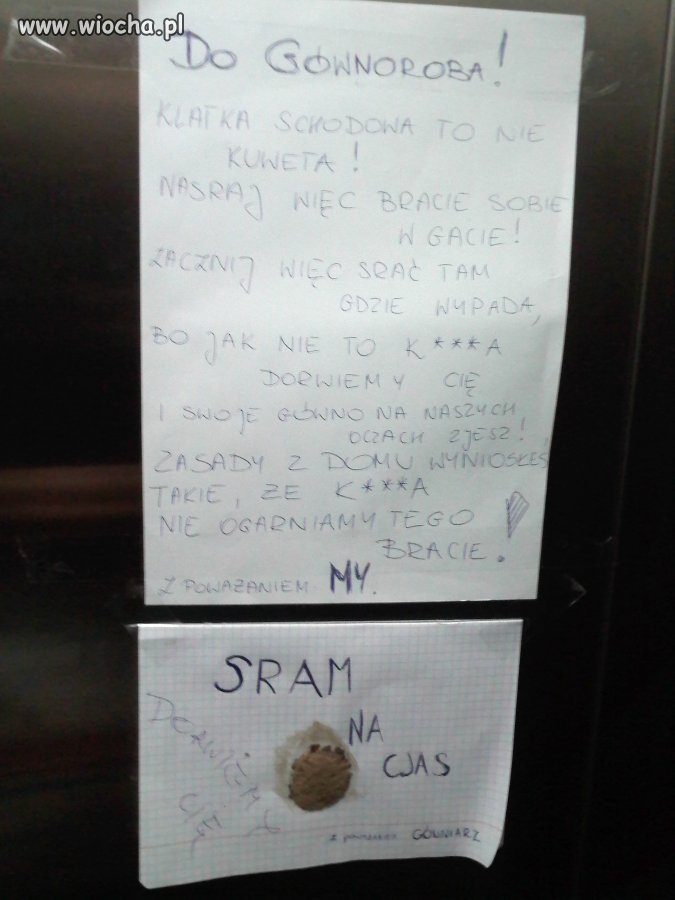 www.wiocha.pl
DO GÓWNOROBA!
KLATKA SCHODOWA TO NIE
KUWETA!
NASRAJ WIĘC BRACIE SOBIE
W GACIE!
ZACZNIJ WIĘC SRAĆ TAM
GDZIE WYPADA,
BO JAK NIE TO K***A
DORWIEMY CIĘ
I SWOJE GÓWNO NA NASZYCH
OCZACH ZJESZ!
ZASADY Z DOMU WYNIOSŁEŚ
TAKIE, ŻE K***A
NIE OGARNIAMY TEGO
BRACIE.
Z POWAŻANIEM MY.
SRAM
NA
CJAS
CIĘ
Z poważaniem GÓWNIARZ